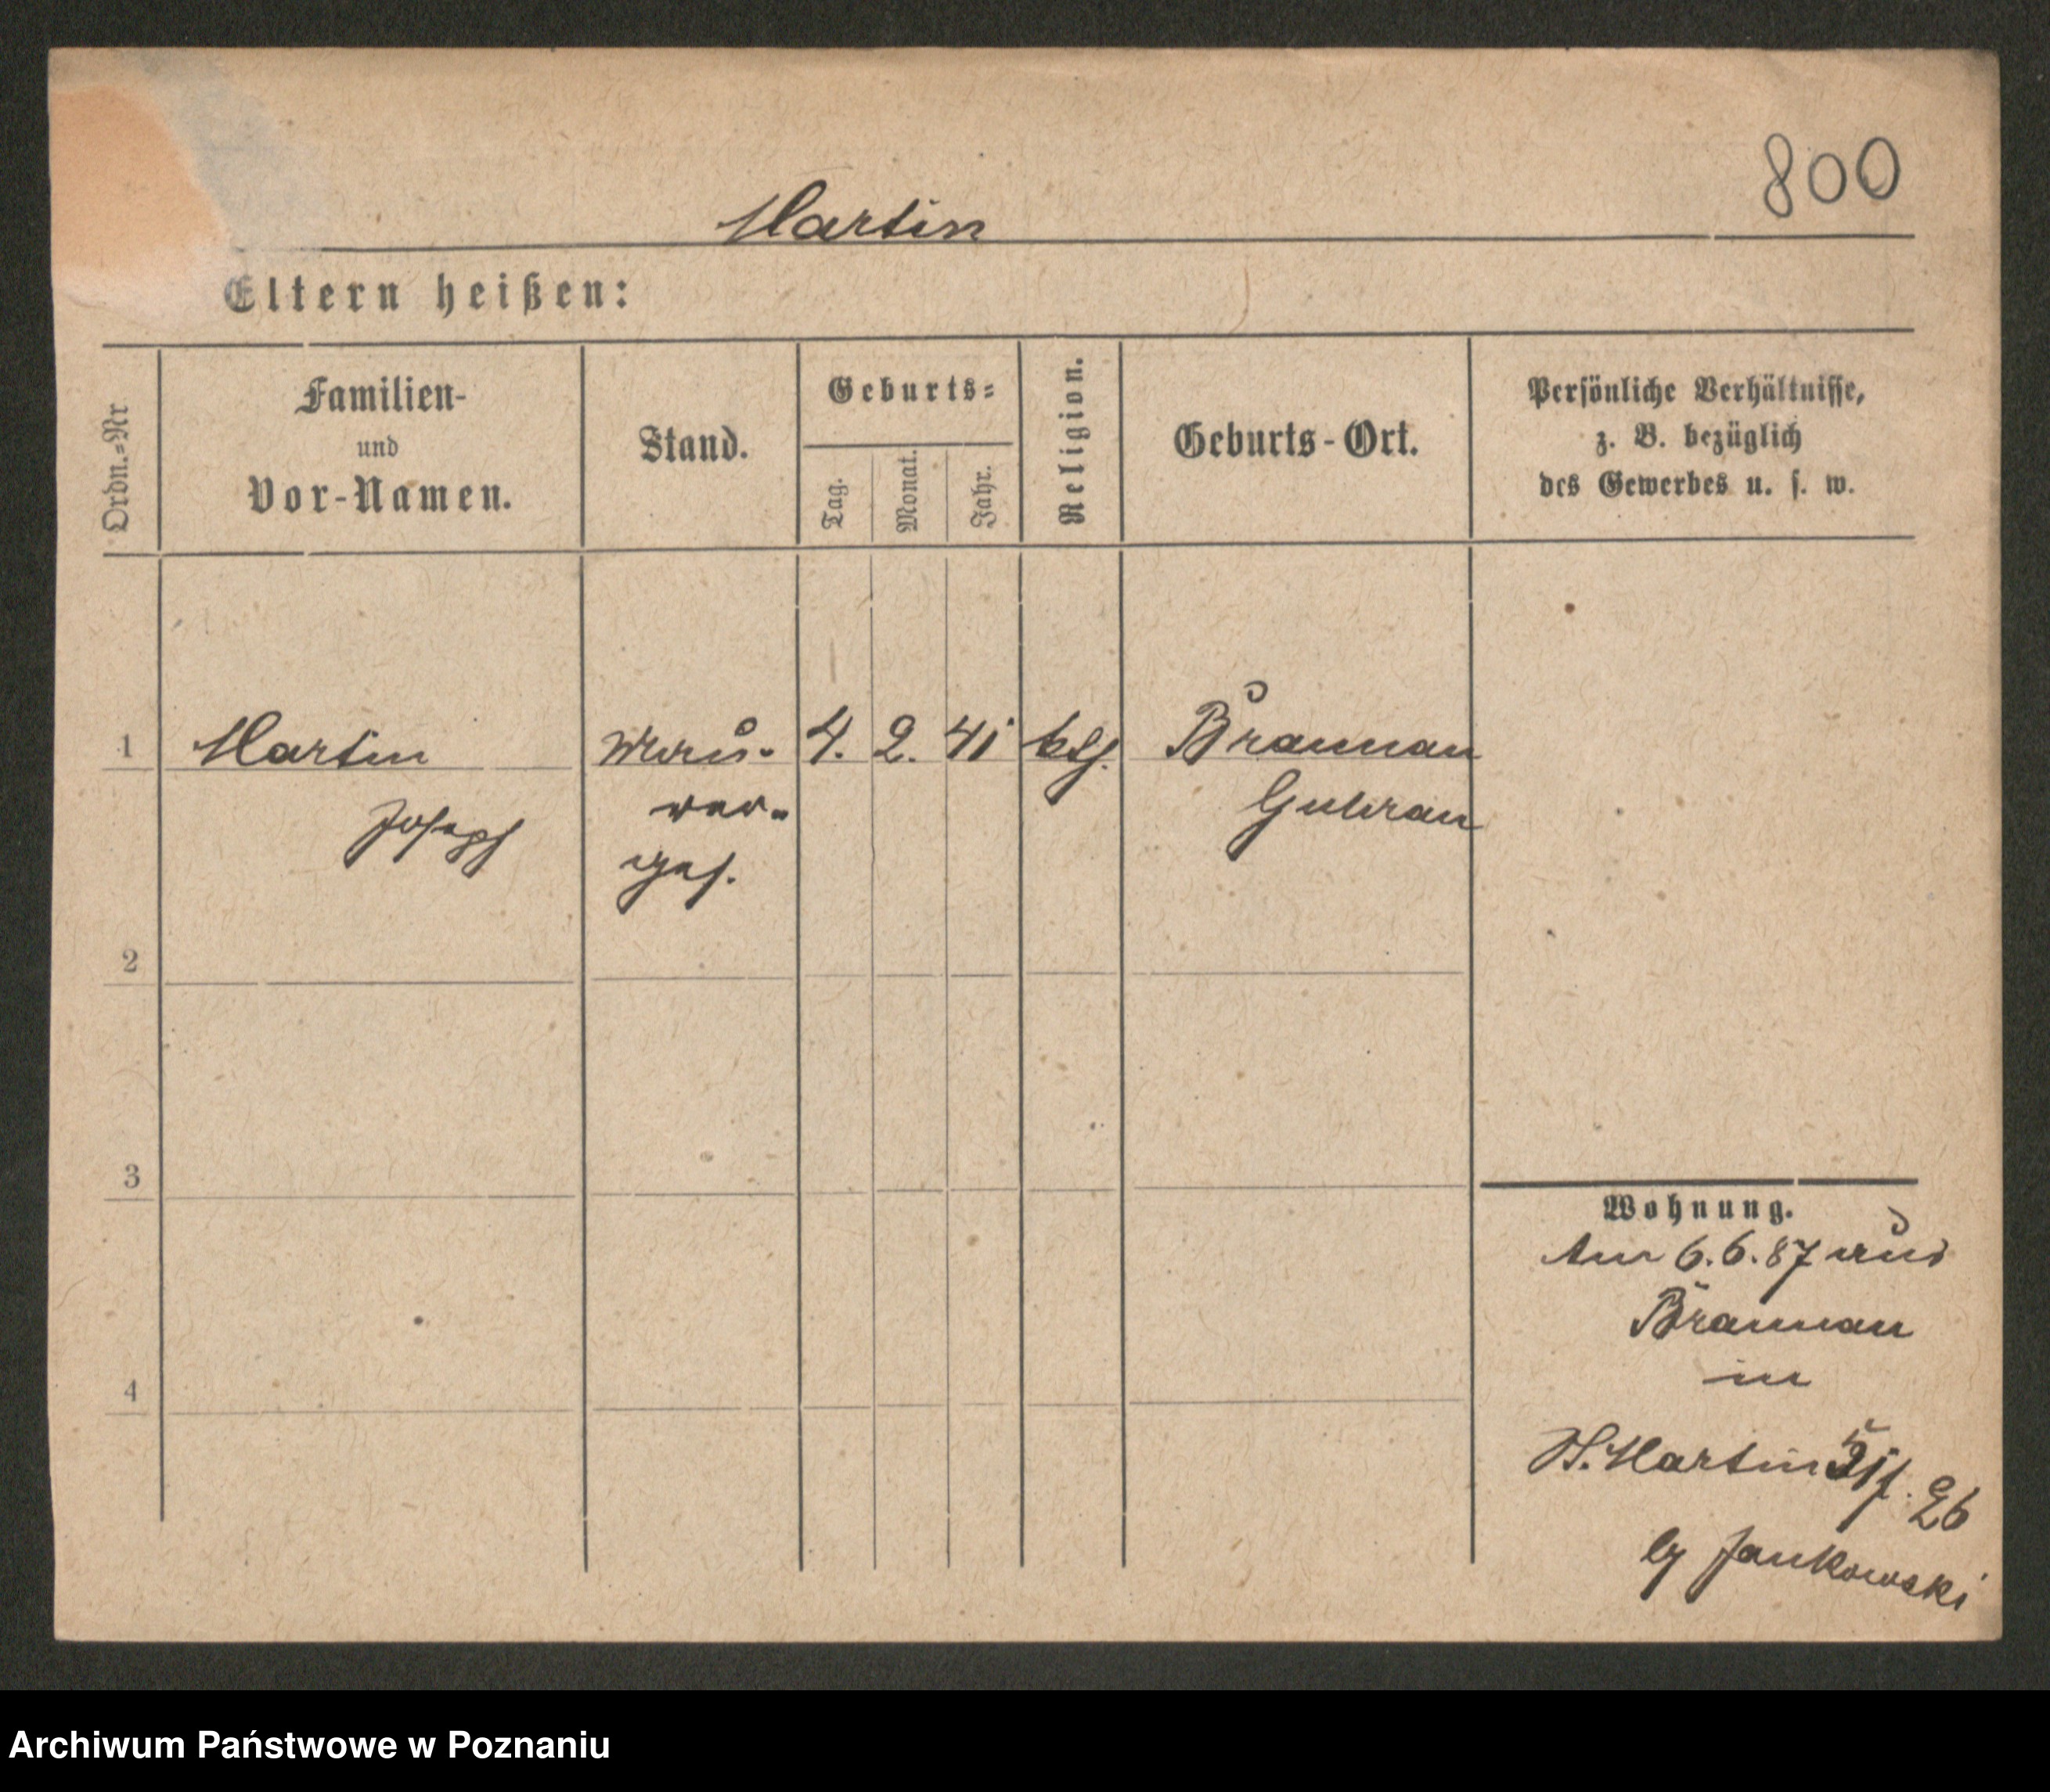 800
Martin
Eltern heißen:
Ordn.=Nr
Familien-
und
Vor-Namen.
Stand.
Geburts=
Tag.
Monat.
Jahr.
Religion.
Geburts-Ort.
Persönliche Verhältnisse,
z. B. bezüglich
des Gewerbes u. s. w.
1
Martin
Joseph
Mau-
rer-
ges.
4. 2. 41
kth.
Braunau
Guhrau
2
3
4
Wohnung.
Am 6.6.87 aus
Braunau
in
St. Martin 26
by Jankowski
Archiwum Państwowe w Poznaniu